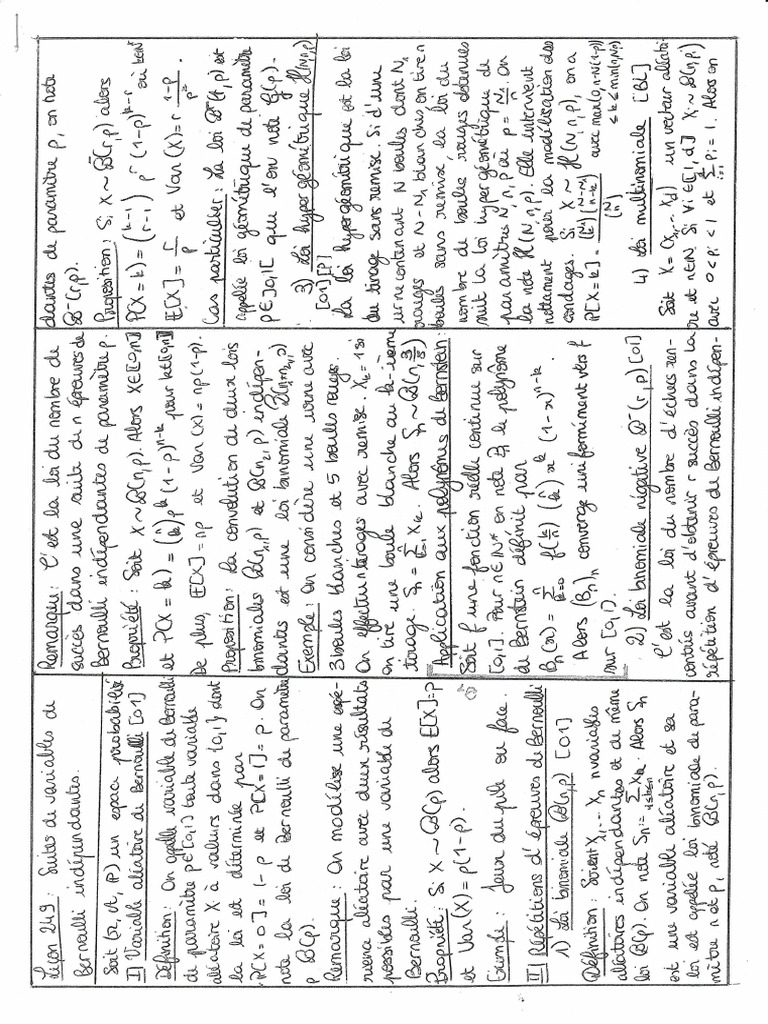 Leçon 249 : Suites de variables de
Bernoulli indépendantes.
Soit (Ω, A, P) un espace probabilisé
I) Variable aléatoire de Bernoulli [01]
Définition : On appelle variable de Bernoulli
de paramètre p∈[0,1] toute variable
aléatoire X à valeurs dans {0,1} dont
la loi est déterminée par
P[X=0] = 1-p et P[X=1] = p. On
note la loi de Bernoulli de paramètre
p B(p).
Remarque : On modélise une expé-
rience aléatoire avec deux résultats
possibles par une variable de
Bernoulli.
Propriété : Si X ~ B(p) alors E[X]=p
et Var(X) = p(1-p).
Exemple : Jeux du pile ou face.
II) Répétitions d'épreuves de Bernoulli
1) Loi binomiale B(n,p) [01]
Définition : Soient X₁, ..., Xₙ n variables
aléatoires indépendantes et de même
loi B(p). On note Sₙ = Σ_{1≤k≤n} Xₖ. Alors Sₙ
est une variable aléatoire et sa
loi est appelée loi binomiale de para-
mètre n et p, noté B(n,p).
Remarque : C'est la loi du nombre de
succès dans une suite de n épreuves de
Bernoulli indépendantes de paramètre p.
Propriété : Soit X ~ B(n,p). Alors X∈[0,n]
et P(X=k) = (n k) p^k (1-p)^{n-k} pour k∈[0,n]
De plus, E[X] = np et Var(X) = np(1-p).
Proposition : La convolution de deux lois
binomiales B(n₁,p) et B(n₂,p) indépen-
dantes est une loi binomiale B(n₁+n₂,p)
Exemple : On considère une urne avec
3 boules blanches et 5 boules rouges.
On effectue n tirages avec remise. Xₖ = 1 si
on tire une boule blanche au k-ième
tirage. Sₙ = Σ_{k=1}^n Xₖ. Alors Sₙ ~ B(n, 3/8)
Application aux polynômes de Bernstein :
Soit f une fonction réelle continue sur
[0,1]. Pour n∈N* on note Bₙ le polynôme
de Bernstein définit par
Bₙ(x) = Σ_{k=0}^n f(k/n) (n k) x^k (1-x)^{n-k}
Alors (Bₙ)ₙ converge uniformément vers f
sur [0,1].
2) Loi binomiale négative B⁻(r,p) [01]
C'est la loi du nombre d'échecs ren-
contrés avant d'obtenir r succès dans la
répétition d'épreuves de Bernoulli indépen-
dantes de paramètre p, on note
B⁻(r,p).
Proposition : Si X ~ B⁻(r,p) alors
P(X=k) = (k-1 r-1) p^r (1-p)^{k-r} où k∈N
E[X] = r/p et Var(X) = r (1-p)/p²
Cas particulier : La loi B⁻(1,p) est
appelée loi géométrique de paramètre
p∈]0,1[ que l'on note G(p).
3) Loi hypergéométrique H(N,n,p)
[01] [P]
La loi hypergéométrique est la loi
du tirage sans remise. Si d'une
urne contenant N boules dont N₁
rouges et N-N₁ blanches on tire n
boules sans remise la loi du
nombre de boules rouges obtenues
suit la loi hypergéométrique de
paramètres N, n, p où p = N₁/N. On
la note H(N,n,p). Elle intervient
nottament pour la modélisation des
sondages. Si X ~ H(N,n,p), on a
P[X=k] = (N₁ k)(N-N₁ n-k)/(N n) avec max(0,n-N(1-p)) ≤ k ≤ min(n,Np)
4) Loi multinomiale [BL]
Soit X = (X₁, ..., X_d) un vecteur aléatoi-
re et n∈N. Si ∀i∈[1,d] Xᵢ ~ B(n,pᵢ)
avec 0<pᵢ<1 et Σ_{i=1}^d pᵢ = 1. Alors on